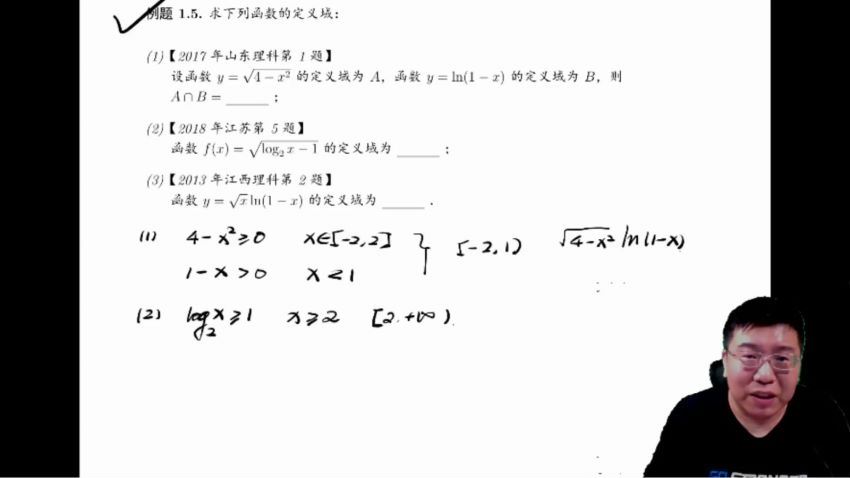 例题 1.5. 求下列函数的定义域：
(1)【2017 年山东理科第 1 题】
设函数 y = √(4 − x²) 的定义域为 A，函数 y = ln(1 − x) 的定义域为 B，则
A ∩ B = ______ ；
(2)【2018 年江苏第 5 题】
函数 f(x) = √(log₂ x − 1) 的定义域为 ______ ；
(3)【2013 年江西理科第 2 题】
函数 y = √x ln(1 − x) 的定义域为 ______ .
(1) 4-x²≥0 x∈[-2,2] } [-2,1) √(4-x²) ln(1-x)
1-x>0 x<1
(2) log₂x≥1 x≥2 [2.+∞).